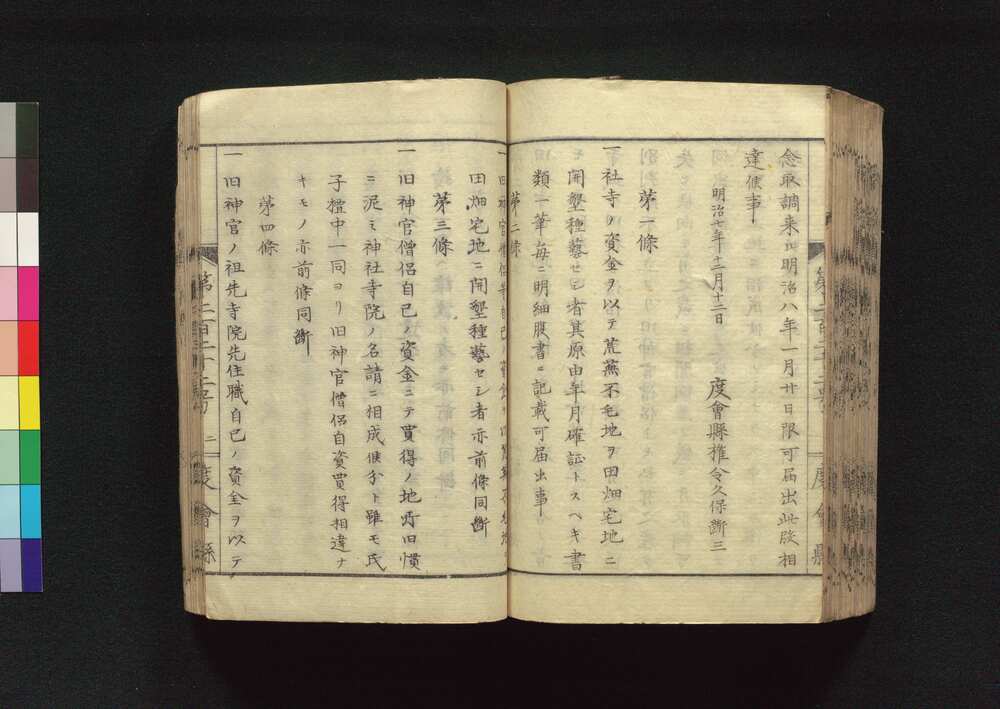 念取調来ル明治八年一月廿日限可届出此段相
達候事
明治七年十二月十二日　度會縣権令久保斷三
第一條
一社寺ノ資金ヲ以テ荒蕪不毛地ヲ田畑宅地ニ
モ開墾種藝セシ者其原由年月確証トスヘキ書
類一筆毎ニ明細腹書ニ記載可届出事
第二條
一旧神官僧侶
田畑宅地ニ開墾種藝セシ者亦前條同斷
第三條
一旧神官僧侶自己ノ資金ニテ買得ノ地所旧慣
ニ泥ミ神社寺院ノ名請ニ相成候分ト雖モ氏
子檀中一同ヨリ旧神官僧侶自資買得相違ナ
キモノ亦前條同斷
第四條
一旧神官ノ祖先寺院先住職自己ノ資金ヲ以テ
第二百二十二号　二　度會縣